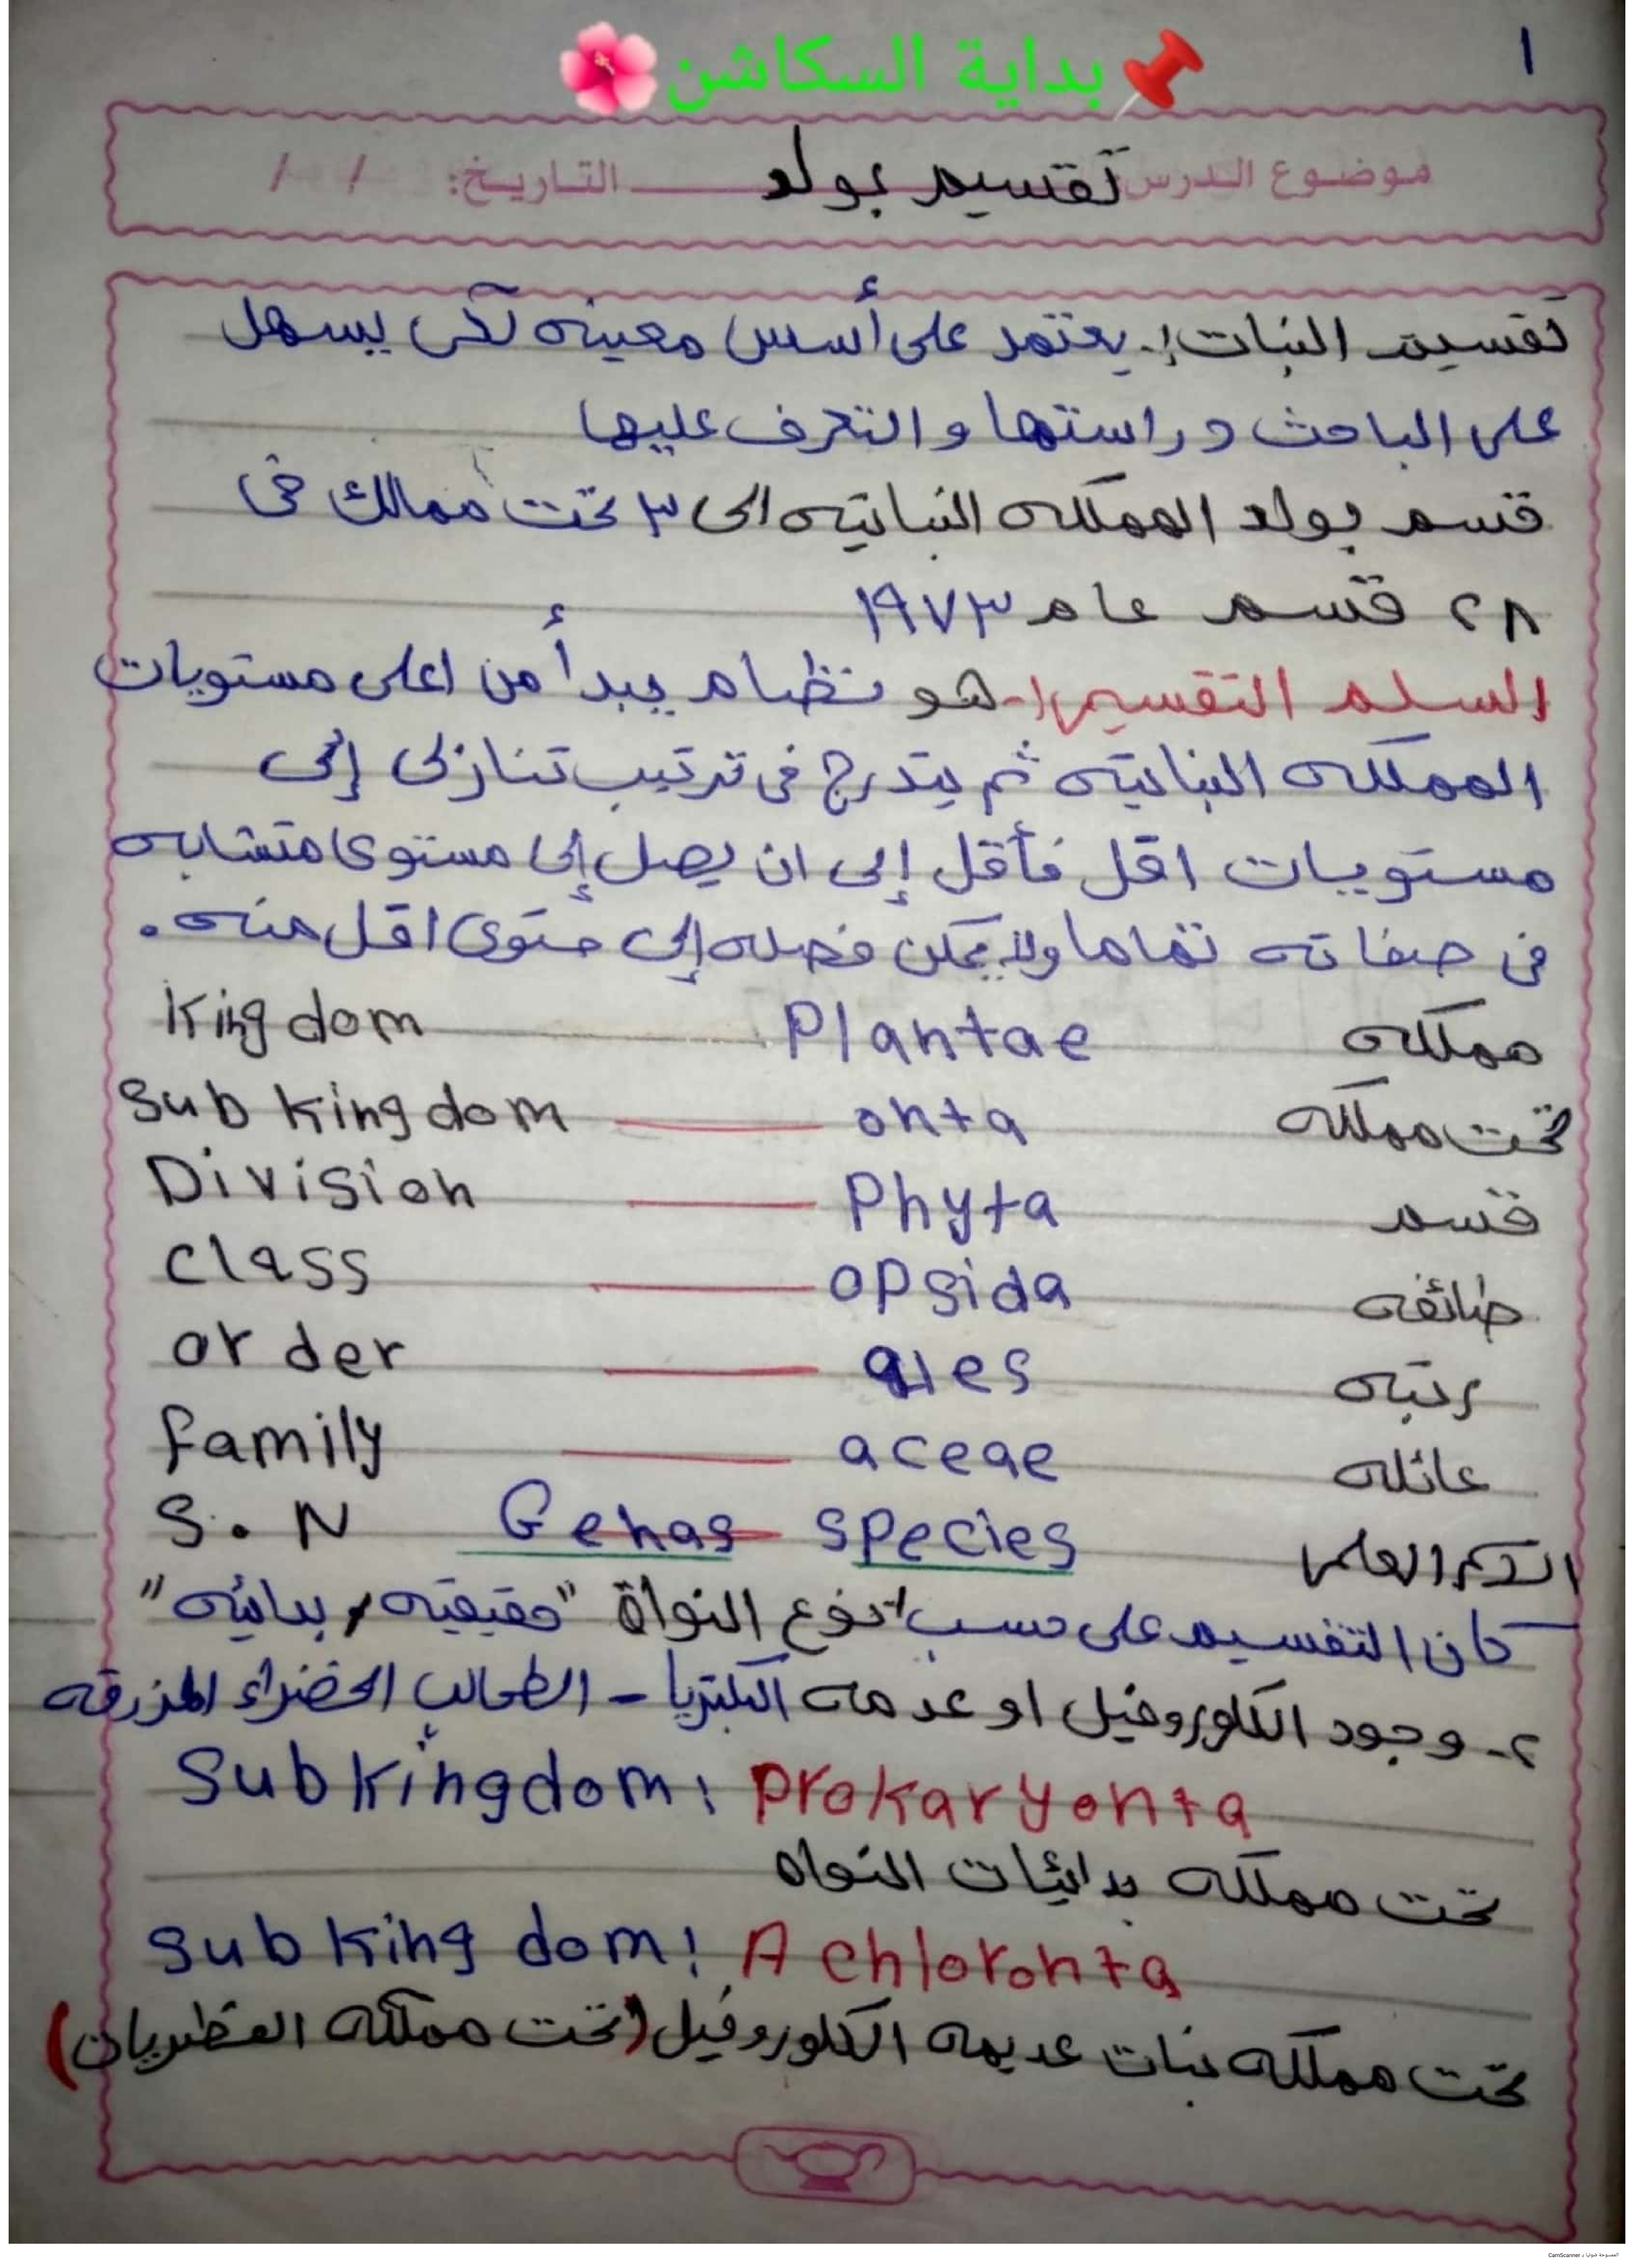 ١
📌بداية السكاشن🌺
موضوع الدرس تقسيم بولد التاريخ: / /
تقسيم النبات:- يعتمد على أسس معينه لكى يسهل
على الباحث دراستها و التعرف عليها
قسم بولد المملكه النباتيه الى ٣ تحت ممالك فى
٢٨ قسم عام ١٩٧٣
السلم التقسيمى:- هو نظام يبدأ من اعلى مستويات
المملكه النباتيه ثم يتدرج فى ترتيب تنازلى إلى
مستويات اقل فأقل إلى ان يصل إلى مستوى متشابه
فى صفاته تماما ولا يمكن فصله إلى متوى اقل منه.
Kingdom Plantae مملكه
Sub kingdom —— onta تحت مملكه
Division —— Phyta قسم
class —— opsida طائفه
order —— ales رتبه
family —— aceae عائله
S.N Genas species الاسم العلمى
كان التقسيم على حسب ١- نوع النواة "حقيقيه / بدائيه"
٢- وجود الكلوروفيل او عدمه البكتريا - الطحالب الخضراء المزرقه
Subkingdom: Prokaryonta
تحت مملكه بدائيات النواه
Sub king dom: A chloronta
تحت مملكه نبات عديمه الكلوروفيل (تحت مملكه الفطريات)
الممسوحة ضوئيا بـ CamScanner